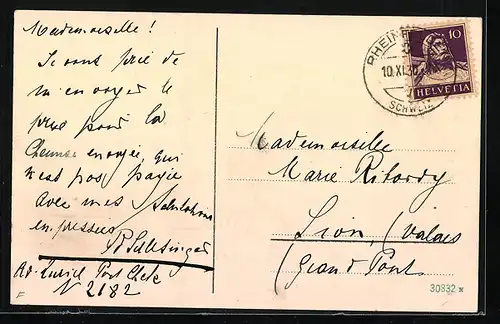 Mademoiselle!
Je vous prie de
m'envoyer le
prix pour la
envoyée, qui
n'est pas payée
avec mes Salutations
empressées
Ad. Post Chek
N 2182
RHEINF
10.XI.30
SCHWEIZ
10
HELVETIA
Mademoiselle
Marie
Sion, (Valais
(Grand Pont.
30832 N
F